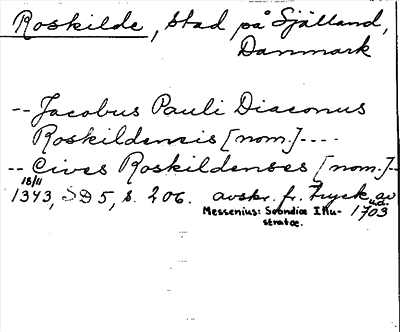 Roskilde, stad på Själland,
Danmark
-- Jacobus Pauli Diaconus
Roskildensis [nom.] ----
-- Cives Roskildenses [nom.] --
18/11
1343, SD 5, s. 206. avskr. fr. Tryck av
Messenius: Scondia Illu- 1703
stratæ.